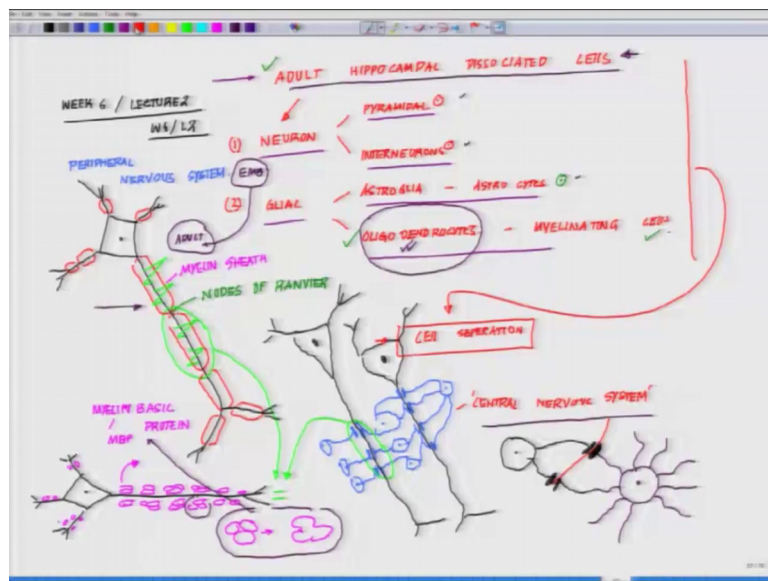 ADULT HIPPOCAMPAL DISSOCIATED CELLS
WEEK 6 / LECTURE 2
W6/L2
(1) NEURON
PYRAMIDAL
INTERNEURONS
PERIPHERAL
NERVOUS SYSTEM
EMB
(2) GLIAL
ASTROGLIA - ASTROCYTES
ADULT
OLIGODENDROCYTES - MYELINATING CELLS
MYELIN SHEATH
NODES OF RANVIER
CELL SEPERATION
'CENTRAL NERVOUS SYSTEM'
MYELIN BASIC
/ PROTEIN
MBP